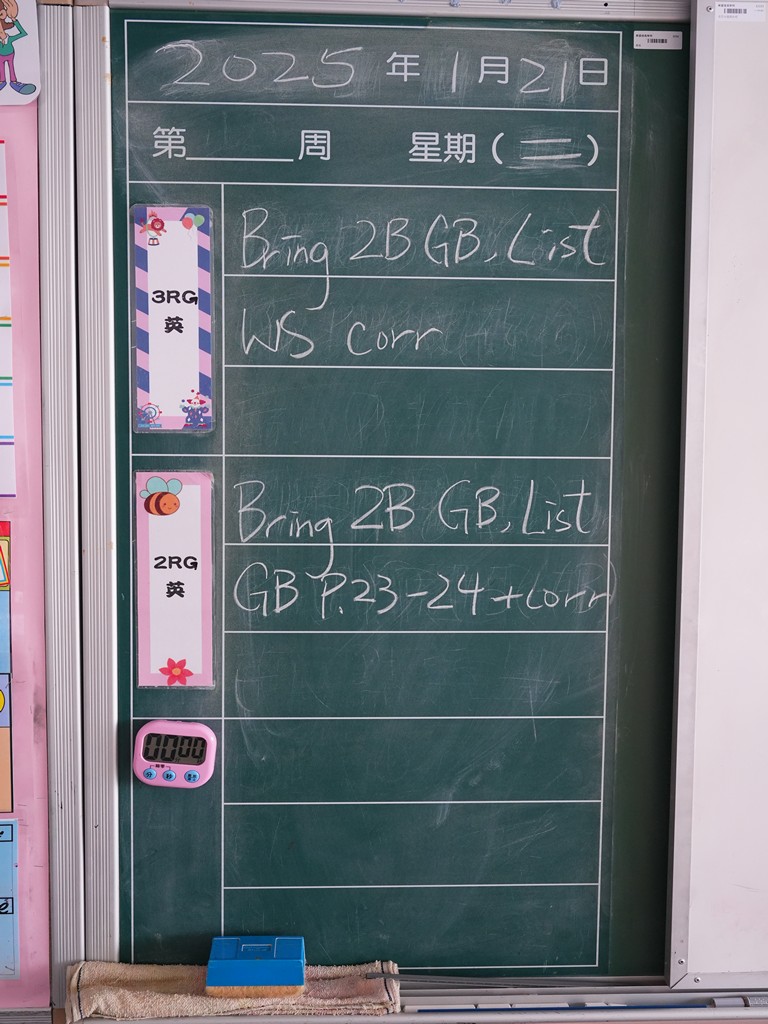 2025年1月21日
第______周 星期(二)
3RG
英
Bring 2B GB, List
WS corr
2RG
英
Bring 2B GB, List
GB P.23-24 + corr
00:00
分 秒